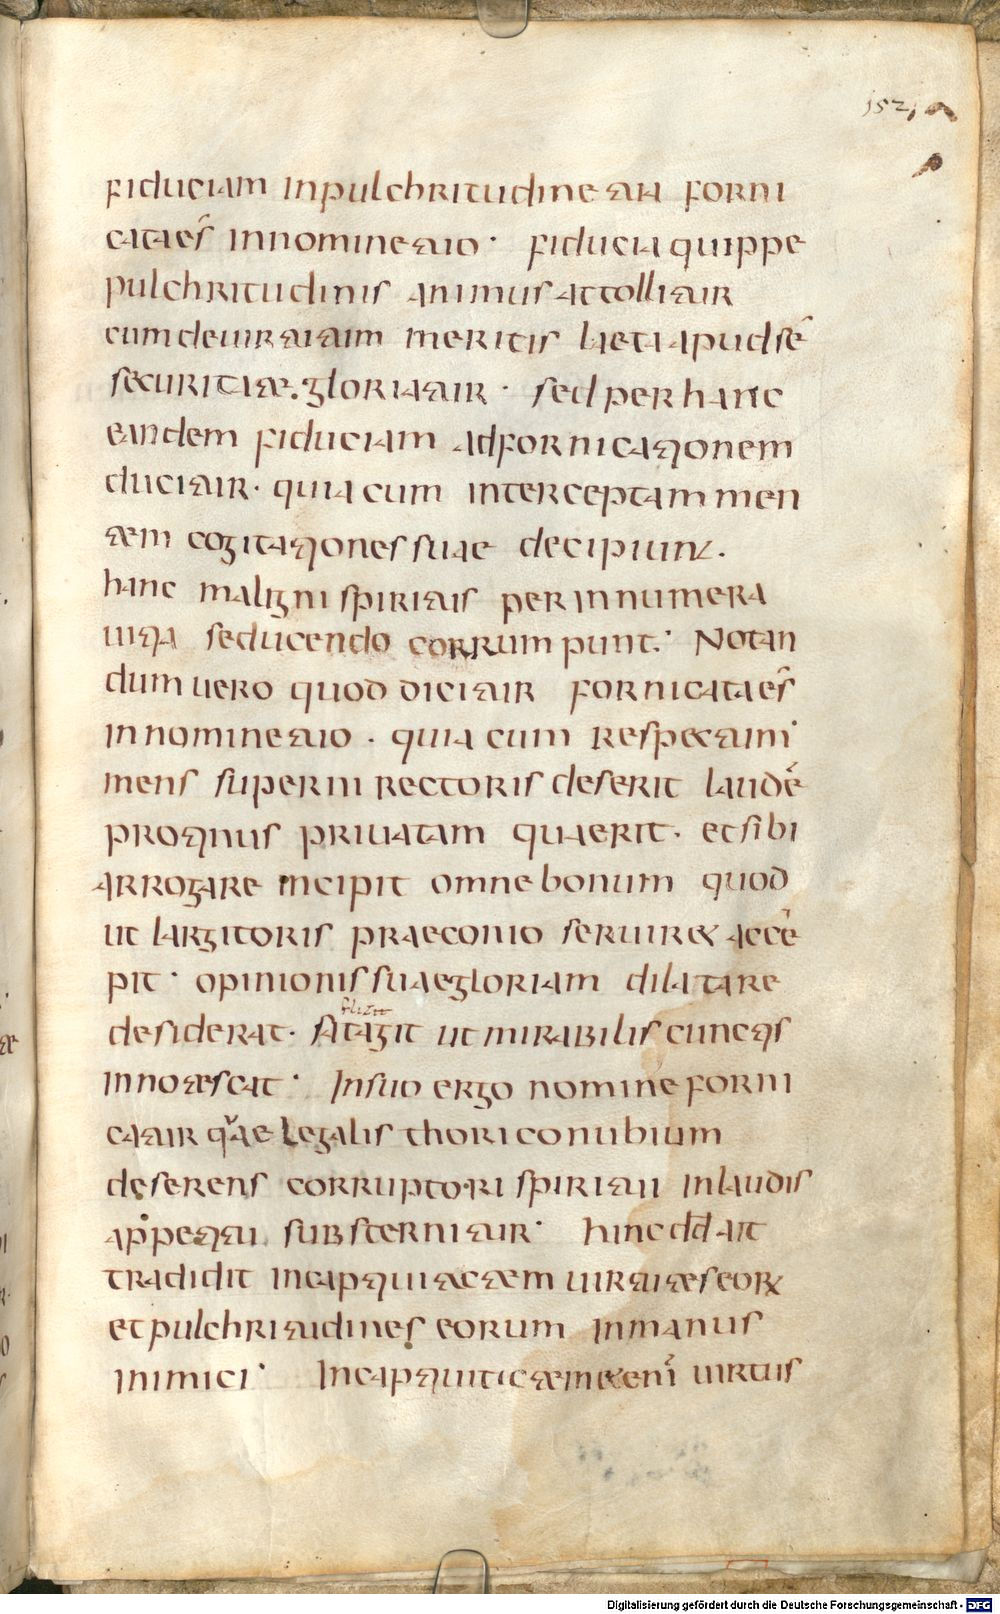 152,
fiduciam inpulchritudine tua forni
cata es̄ innomine tuo· fiducia quippe
pulchritudinis animus attollitur
cum de uirtutum meritis laeta apud sē
securitate gloriatur· sed per hanc
eandem fiduciam ad fornicationem
ducitur· quia cum interceptam men
tem cogitationes suae decipiunt.
hanc maligni spiritus per innumera
uitia seducendo corrumpunt.· Notan
dum uero quod dicitur fornicata es̄
in nomine tuo· quia cum respectum
mens superni rectoris deserit laudē
protinus priuatam quaerit· et sibi
arrogare incipit omne bonum quod
ut largitoris praeconio seruiret accē
pit· opinionis suae gloriam dilatare
desiderat· satagit ut mirabilis cunctis
innotescat· In suo ergo nomine forni
catur quae legalis thori conubium
deserens corruptori spiritui in laudis
appetitu substernitur· hinc dd̄ ait
tradidit in captiuitatem uirtutes eorꝝ
et pulchritudines eorum in manus
inimici· In captiuitatem etenī uirtus
Digitalisierung gefördert durch die Deutsche Forschungsgemeinschaft - DFG